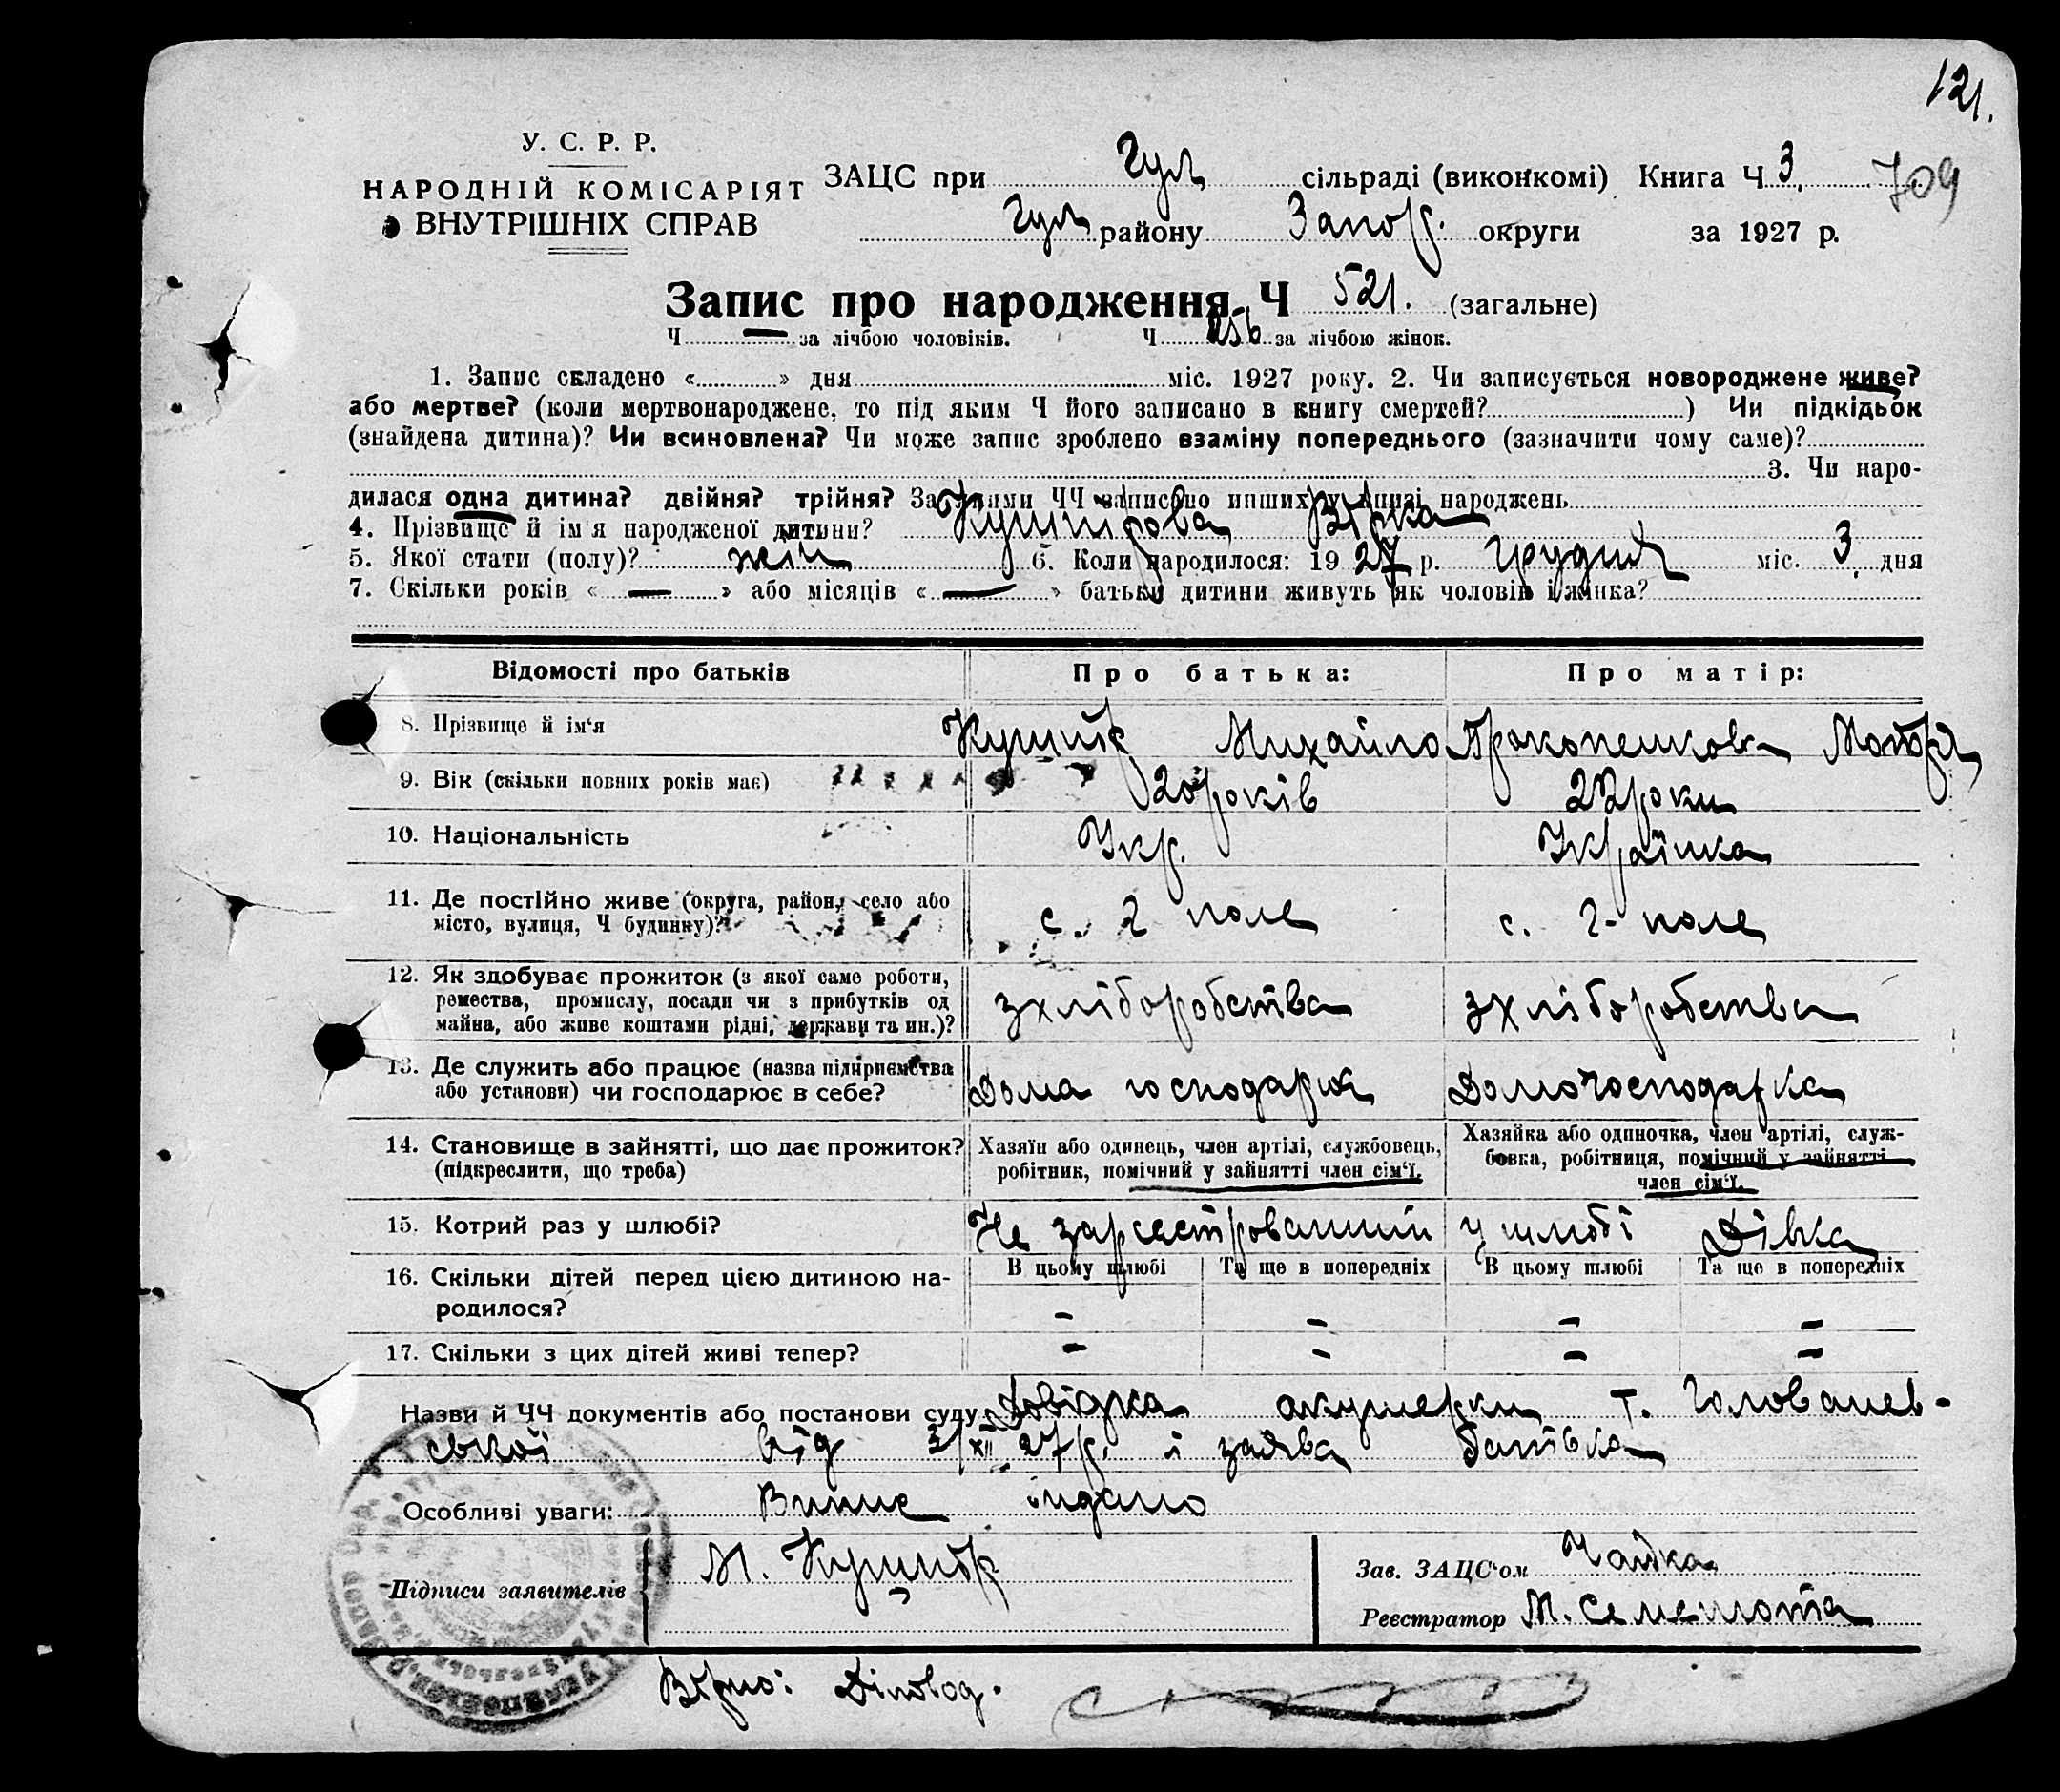 121.
У. С. Р. Р.
НАРОДНІЙ КОМІСАРІЯТ
ВНУТРІШНІХ СПРАВ
ЗАЦС при Гул сільраді (виконкомі) Книга Ч 3. 709
Гул району Запор. округи за 1927 р.
Запис про народження Ч 521. (загальне)
Ч — за лічбою чоловіків. Ч 256 за лічбою жінок.
1. Запис складено « » дня міс. 1927 року. 2. Чи записується новороджене живе?
або мертве? (коли мертвонароджене, то під яким Ч його записано в книгу смертей? ) Чи підкідьок
(знайдена дитина)? Чи всиновлена? Чи може запис зроблено взаміну попереднього (зазначити чому саме)?
3. Чи наро-
дилася одна дитина? двійня? трійня? За якими ЧЧ записано инших у книзі народжень
4. Прізвище й ім'я народженої дитини? Кушнірова Вірка
5. Якої стати (полу)? жін 6. Коли народилося: 1927 р. грудня міс. 3 дня
7. Скільки років « — » або місяців « — » батьки дитини живуть як чоловік і жинка?
Відомості про батьків Про батька: Про матір:
8. Прізвище й ім'я Кушнір Михайло Прокопенкова Мотря
9. Вік (скільки повних років має) 20 років 22 роки
10. Національність Укр. Українка
11. Де постійно живе (округа, район, село або
місто, вулиця, Ч будинку)? с. Г поле с. Г-поле
12. Як здобуває прожиток (з якої саме роботи,
ремества, промислу, посади чи з прибутків од
майна, або живе коштами рідні, держави та ин.)? з хліборобства з хліборобства
13. Де служить або працює (назва підприємства
або установи) чи господарює в себе? Дома господарює Домогосподарка
14. Становище в зайнятті, що дає прожиток?
(підкреслити, що треба)
Хазяїн або одинець, член артілі, службовець,
робітник, помічний у зайнятті член сім'ї.
Хазяйка або одиночка, член артілі, служ-
бовка, робітниця, помічний у зайнятті
член сім'ї.
15. Котрий раз у шлюбі? Не зареєстрований у шлюбі Дівка
16. Скільки дітей перед цією дитиною на-
родилося?
В цьому шлюбі Та ще в попередніх В цьому шлюбі Та ще в попередніх
– – – –
17. Скільки з цих дітей живі тепер? – – – –
Назви й ЧЧ документів або постанови суду Довідка акушерки т. Голованев-
ської від 3/XII 27 р. і заява батька
Особливі уваги: Випис видано
Підписи заявителів М. Кушнір
Зав. ЗАЦС'ом Чайка
Реєстратор М. Семенюта
Вірно: Діловод.